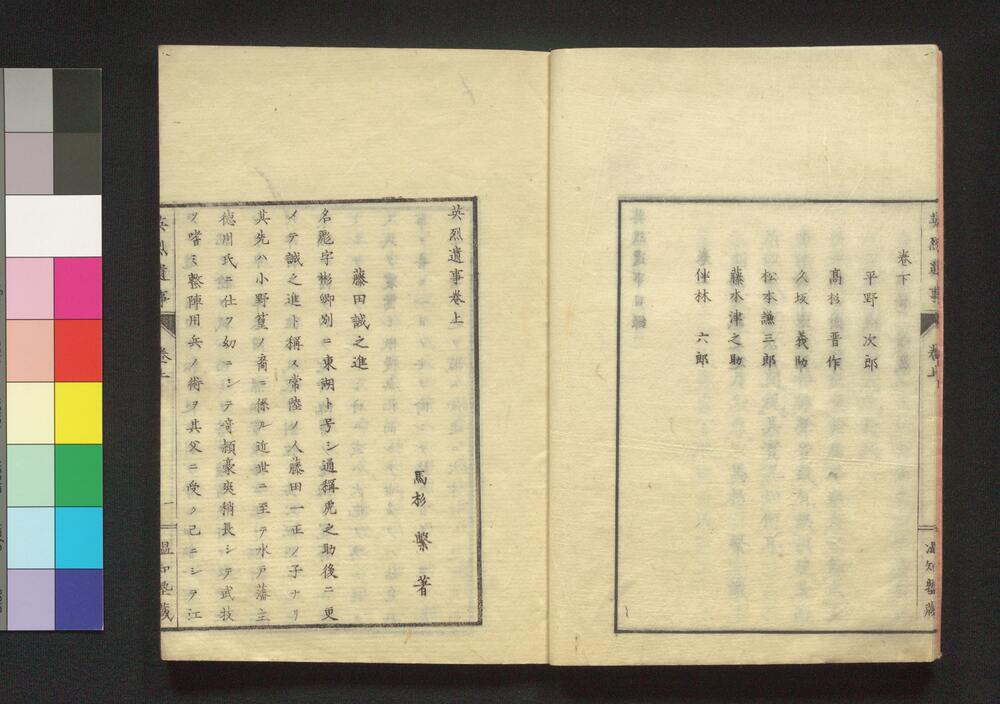 英烈遺事 卷上 温知塾藏
卷下
平野 次郎
高杉 晋作
久坂 義助
松本謙三郎
藤本津之助
伴林 六郎
英烈遺事卷上
馬杉 繫 著
藤田誠之進
名彪字彬卿別ニ東湖ト号シ通稱虎之助後ニ更
メテ誠之進ト稱ス常陸ノ人藤田一正ノ子ナリ
其先ハ小野篁ノ裔ニ係ル近世ニ至テ水戸藩主
德川氏ニ仕フ幼ニシテ奇頴豪爽稍長シテ武技
ヲ嗜ミ整陣用兵ノ術ヲ其父ニ受ク已ニシテ江
英烈遺事 卷上 一 温知塾藏